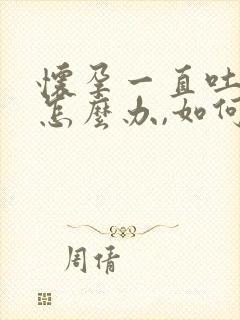 懷孕一直吐
怎麼办,如何
周倩